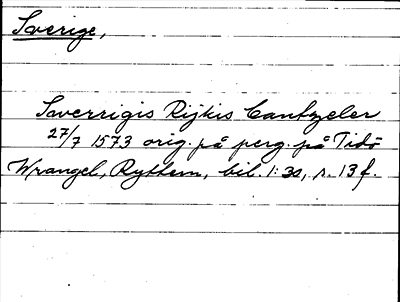 Sverige,
Saverrigis Rijkis Cantzeler
27/7 1573 orig. på perg. på Tidö
Wrangel, Rythern, bil. 1:30, s. 13 f.